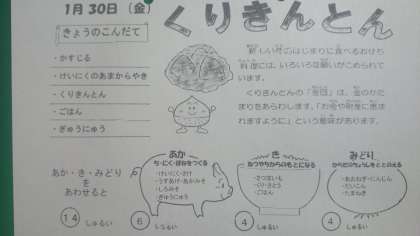 1月30日（金）
くりきんとん
きょうのこんだて
・かすじる
・けいにくのあまからやき
・くりきんとん
・ごはん
・ぎゅうにゅう
新しい年のはじまりに食べるおせち
料理には、いろいろな願いがこめられて
います。
くりきんとんの「金団」は、金のかた
まりをあらわします。「お金や財産に恵ま
れますように」という意味があります。
あか・き・みどり
を
あわせると
14 しゅるい
あか
ち・にく・ほねをつくる
・けいにく・さけ
・うすあげ・あかみそ
・しろみそ
・ぎゅうにゅう
6 しゅるい
き
ねつやちからのもとになる
・さつまいも
・くり・さとう
・ごはん
4 しゅるい
みどり
からだのちょうしをととのえる
・あおねぎ・にんじん
・だいこん
・たまねぎ
4 しゅるい